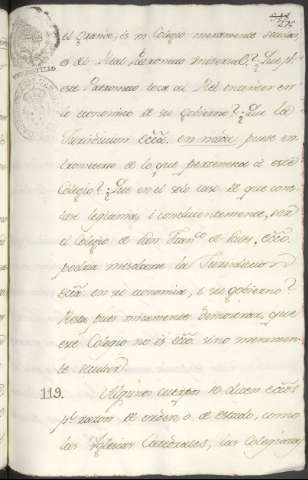 el Grande, es un Colegio meramente secular,
es de Real Patronato universal? Que pr.
este Patronato toca al Rei entender en
lo economico de su gobierno? Que la
Jurisdicion ecca. en nada puede en
trometerse de lo que pertenezca à este
Colegio? Que en el solo caso de que cons
tase legitima, i concluientemente, ser
el Colegio de San Franco. de Asis, ecco.
podria mezclarse la Jurisdicion
ecca. en su economia, i su gobierno?
Resta pues unicamente demostrar, que
este Colegio no es ecco. sino meramen-
te secular.
119. Algunos cuerpos se dicen eccos.
pr. razon de orden, o de estado, como
las Iglesias Catedrales, las colegiatas